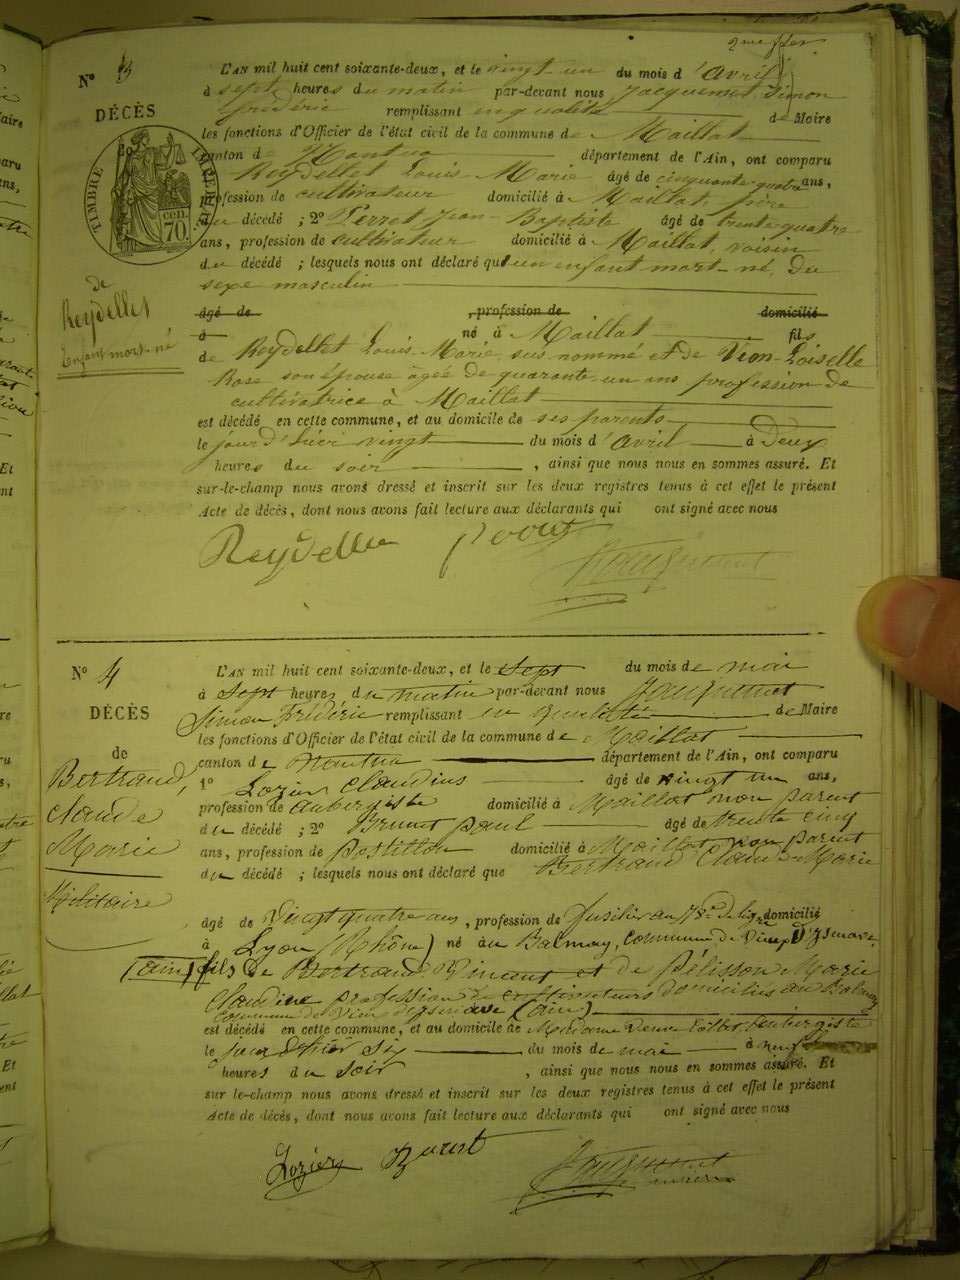 2me f
N° 3
DÉCÈS
TIMBRE IMPÉRIAL
20
CEN.
70.
de
Reydellet
Enfant mort-né
L'AN mil huit cent soixante-deux, et le vingt un du mois d'avril
à sept heures du matin par-devant nous Jacquemet Simon
frédéric remplissant en qualité de Maire
les fonctions d'Officier de l'état civil de la commune de Maillat
canton de Nantua département de l'Ain, ont comparu
Reydellet Louis Marie âgé de cinquante-quatre ans,
profession de cultivateur domicilié à Maillat, père
du décédé ; 2° Perret Jean-Baptiste âgé de trente-quatre
ans, profession de cultivateur domicilié à Maillat, voisin
du décédé ; lesquels nous ont déclaré qu'un enfant mort-né, Du
sexe masculin
âgé de , profession de domicilié
à né à Maillat fils
de Reydellet Louis-Marie, sus nommé et de Vion-Loiselle
Rose son épouse âgée de quarante-un ans profession de
cultivatrice à Maillat
est décédé en cette commune, et au domicile de ses parents
le jour d'hier vingt du mois d'avril à Deux
heures du soir , ainsi que nous nous en sommes assuré. Et
sur-le-champ nous avons dressé et inscrit sur les deux registres tenus à cet effet le présent
Acte de décès, dont nous avons fait lecture aux déclarants qui ont signé avec nous
Reydellet
N° 4
DÉCÈS
de
Bertrand,
claude
Marie
Militaire
L'AN mil huit cent soixante-deux, et le sept du mois de mai
à sept heures du matin par-devant nous Jacquemet
Simon Frédéric remplissant en qualité de Maire
les fonctions d'Officier de l'état civil de la commune de Maillat
canton de Nantua département de l'Ain, ont comparu
1° Lozier claudius âgé de vingt un ans,
profession de aubergiste domicilié à Maillat non parent
du décédé ; 2° Brunet paul âgé de trente cinq
ans, profession de postillon domicilié à Maillat non parent
du décédé ; lesquels nous ont déclaré que Bertrand Claude Marie
âgé de Vingt quatre ans, profession de fusilier au 78e de ligne domicilié
à Lyon (Rhône) né au Balmay, commune de Vieu D'Izenave,
(ain) fils de Bertrand Vincent et de Pélisson Marie
Claudine profession de cultivateurs domiciliés au Balmay
commune de Vieu d'izenave (ain)
est décédé en cette commune, et au domicile de Madame Veuve aubergiste
le jour d'hier six du mois de mai à neuf
heures du soir , ainsi que nous nous en sommes assuré. Et
sur le-champ nous avons dressé et inscrit sur les deux registres tenus à cet effet le présent
Acte de décès, dont nous avons fait lecture aux déclarants qui ont signé avec nous
Lozier